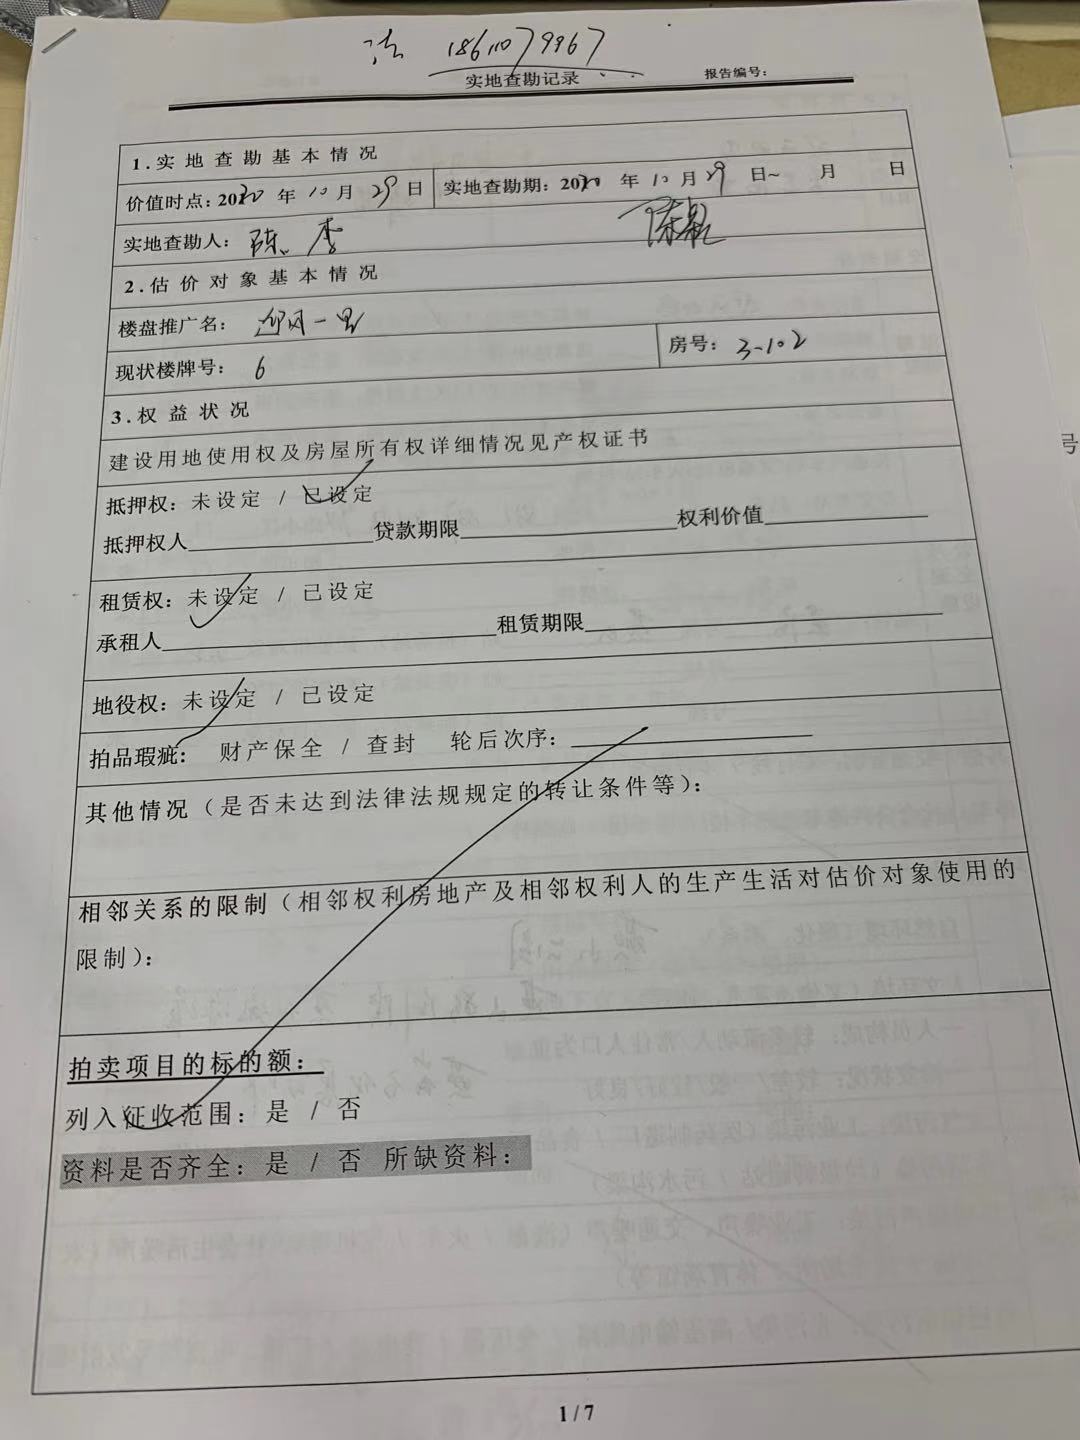 法 18611079967
实地查勘记录 报告编号：
1.实地查勘基本情况
价值时点：2020 年 10 月 29 日 实地查勘期：2020 年 10 月 29 日~ 月 日
实地查勘人： 陈、李
2.估价对象基本情况
楼盘推广名： 迎风一里
现状楼牌号： 6 房号： 3-102
3.权益状况
建设用地使用权及房屋所有权详细情况见产权证书
抵押权：未设定 / 已设定
抵押权人 贷款期限 权利价值
租赁权：未设定 / 已设定
承租人 租赁期限
地役权：未设定 / 已设定
拍品瑕疵： 财产保全 / 查封 轮后次序：
其他情况（是否未达到法律法规规定的转让条件等）：
相邻关系的限制（相邻权利房地产及相邻权利人的生产生活对估价对象使用的
限制）：
拍卖项目的标的额：
列入征收范围：是 / 否
资料是否齐全：是 / 否 所缺资料：
1 / 7
号